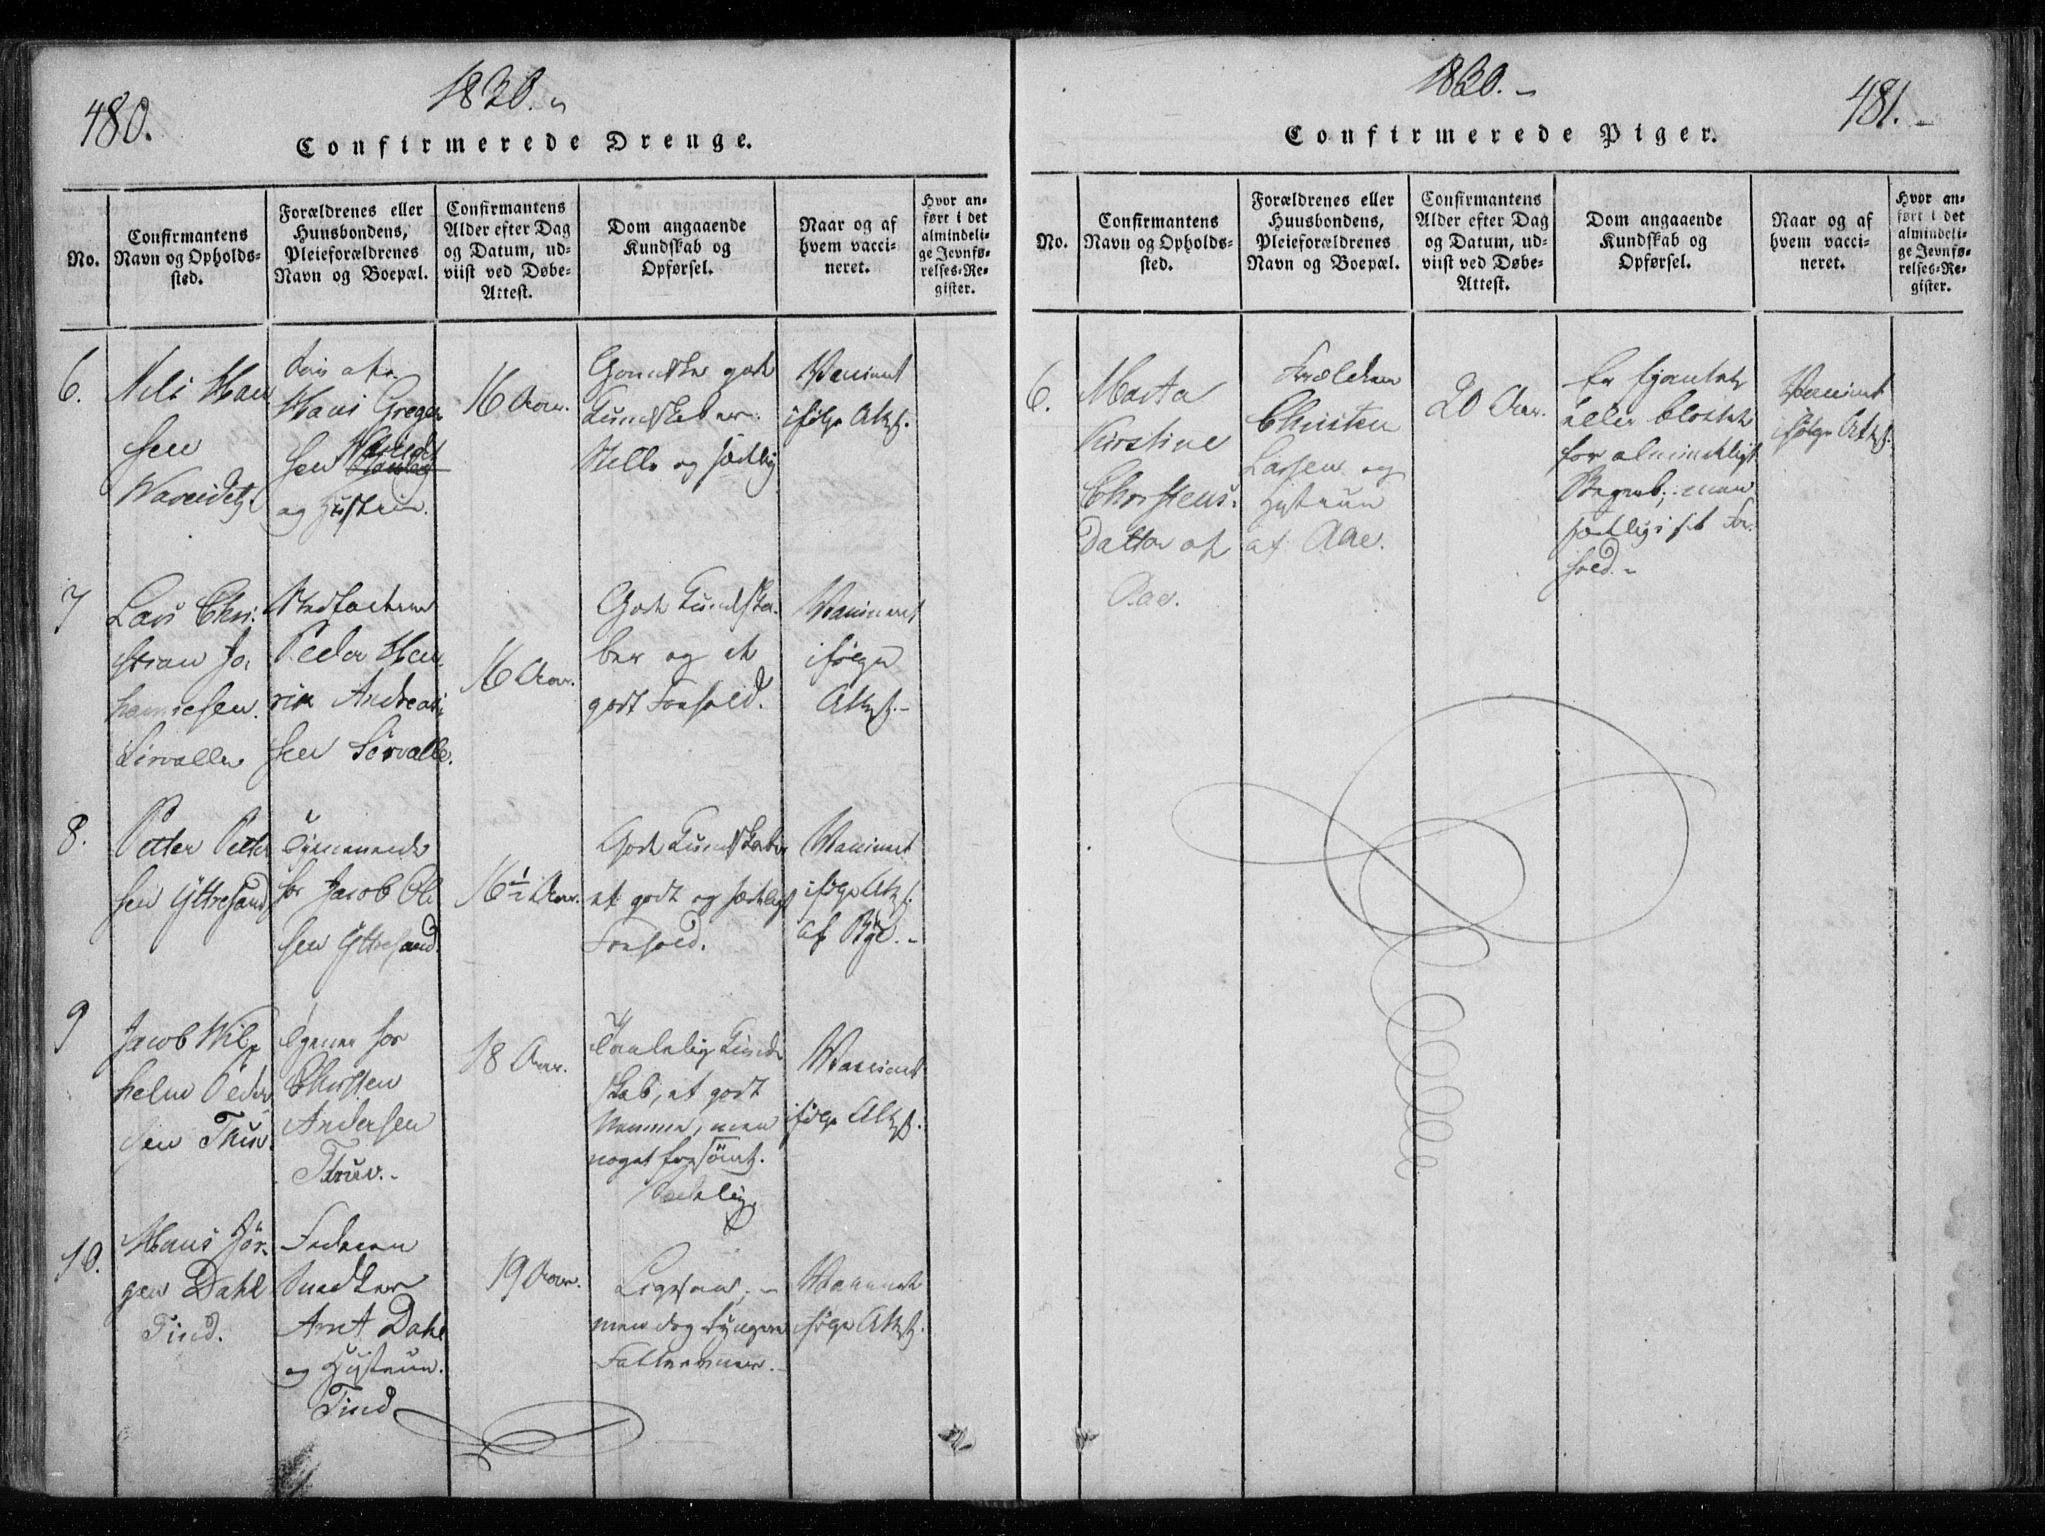 480.
1830.
Confirmerede Drenge.
No.
Confirmantens
Navn og Opholds-
sted.
Forældrenes eller
Huusbondens,
Pleieforældrenes
Navn og Boepæl.
Confirmantens
Alder efter Dag
og Datum, ud-
viist ved Døbe-
Attest.
Dom angaaende
Kundskab og
Opførsel.
Naar og af
hvem vacci-
neret.
Hvor an-
ført i det
almindeli-
ge Jevnfø-
relses-Re-
gister.
6.
Nils Han
sen
Hans Greger
sen
og Hustrue.
16 Aar.
Gandske gode
Kundskaber.
Stille og sædelig
Vaccineret
ifølge Attest.
7
Lars Chri-
stian Jo-
hannesen.
Sørvalle
Stedfaderen
Peder Hen
rik Andreas
sen Sørvalle.
16 Aar.
Gode Kundska-
ber og et
godt Forhold.
Vaccineret
ifølge
Attest.
8.
Petter Petter
sen Yttresand
Tjenende
for Jacob Ole
sen Yttresand.
16½ Aar.
Gode Kundskaber
et godt og sædeligt
Forhold.
Vaccineret
ifølge Attest.
af
9
Jacob Wil-
helm Peder
sen
Tjener for
Christen
Andersen
18 Aar.
Taalelig Kund-
skab, et godt
Nemme, men
noget forsømt.
Sædelig.
Vaccineret
ifølge Attest.
10.
Hans Jør-
gen Dahl
Tind.
Faderen
Snedker
Arnt Dahl
og Hustrue.
Tind
19 Aar.
Ligesaa,
men dog
Vaccineret
ifølge Attest.
1830.
481.
Confirmerede Piger.
No.
Confirmantens
Navn og Opholds-
sted.
Forældrenes eller
Huusbondens,
Pleieforældrenes
Navn og Boepæl.
Confirmantens
Alder efter Dag
og Datum, ud-
viist ved Døbe-
Attest.
Dom angaaende
Kundskab og
Opførsel.
Naar og af
hvem vacci-
neret.
Hvor an-
ført i det
almindeli-
ge Jevnfø-
relses-Re-
gister.
6.
Marta
Kirstine
Christens-
Datter af
Aae.
Forældrene
Christen
Larsen og
Hustrue
af Aae.
20 Aar.
Er
eller blottet
for almindeligt
Begreb; men
sædelig i sit For-
hold.
Vaccineret
ifølge Attest.